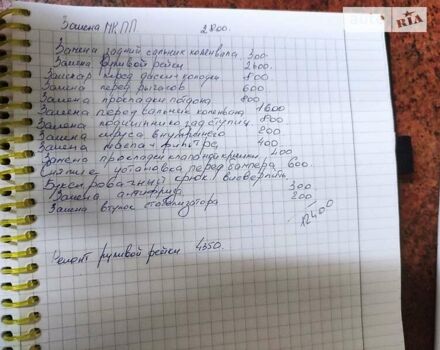 Замена МКПП 2800.
RIA
Замена задний сальник коленвала. 300
Замена руливой рейки 2600.
Замена перед диски колодки 800
Замена перед рычагов 600
Замена прокладки подона. 800
Замена перед сальник коленвала 1600
Замена подшипника зад ступиц 800
Замена шруса внутреннего 800
Замена масла фильтра 400.
Замена прокладки клапаной крышки 400
Снятие установка перед бампера 600.
Буксировачный крюк высверлить
Замена антифриза 300
Замена втулок стабелизатора 200
12400
Ремонт руливой рейки 4350.